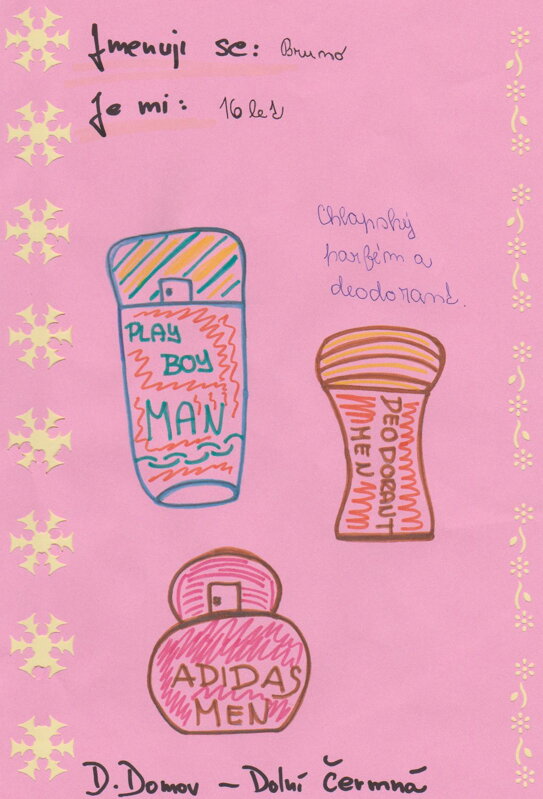 Jmenuji se: Bruno
Je mi: 16 let
Chlapský
parfém a
deodorant.
PLAY
BOY
MAN
DEODORANT
MEN
ADIDAS
MEN
D.Domov – Dolní Čermná